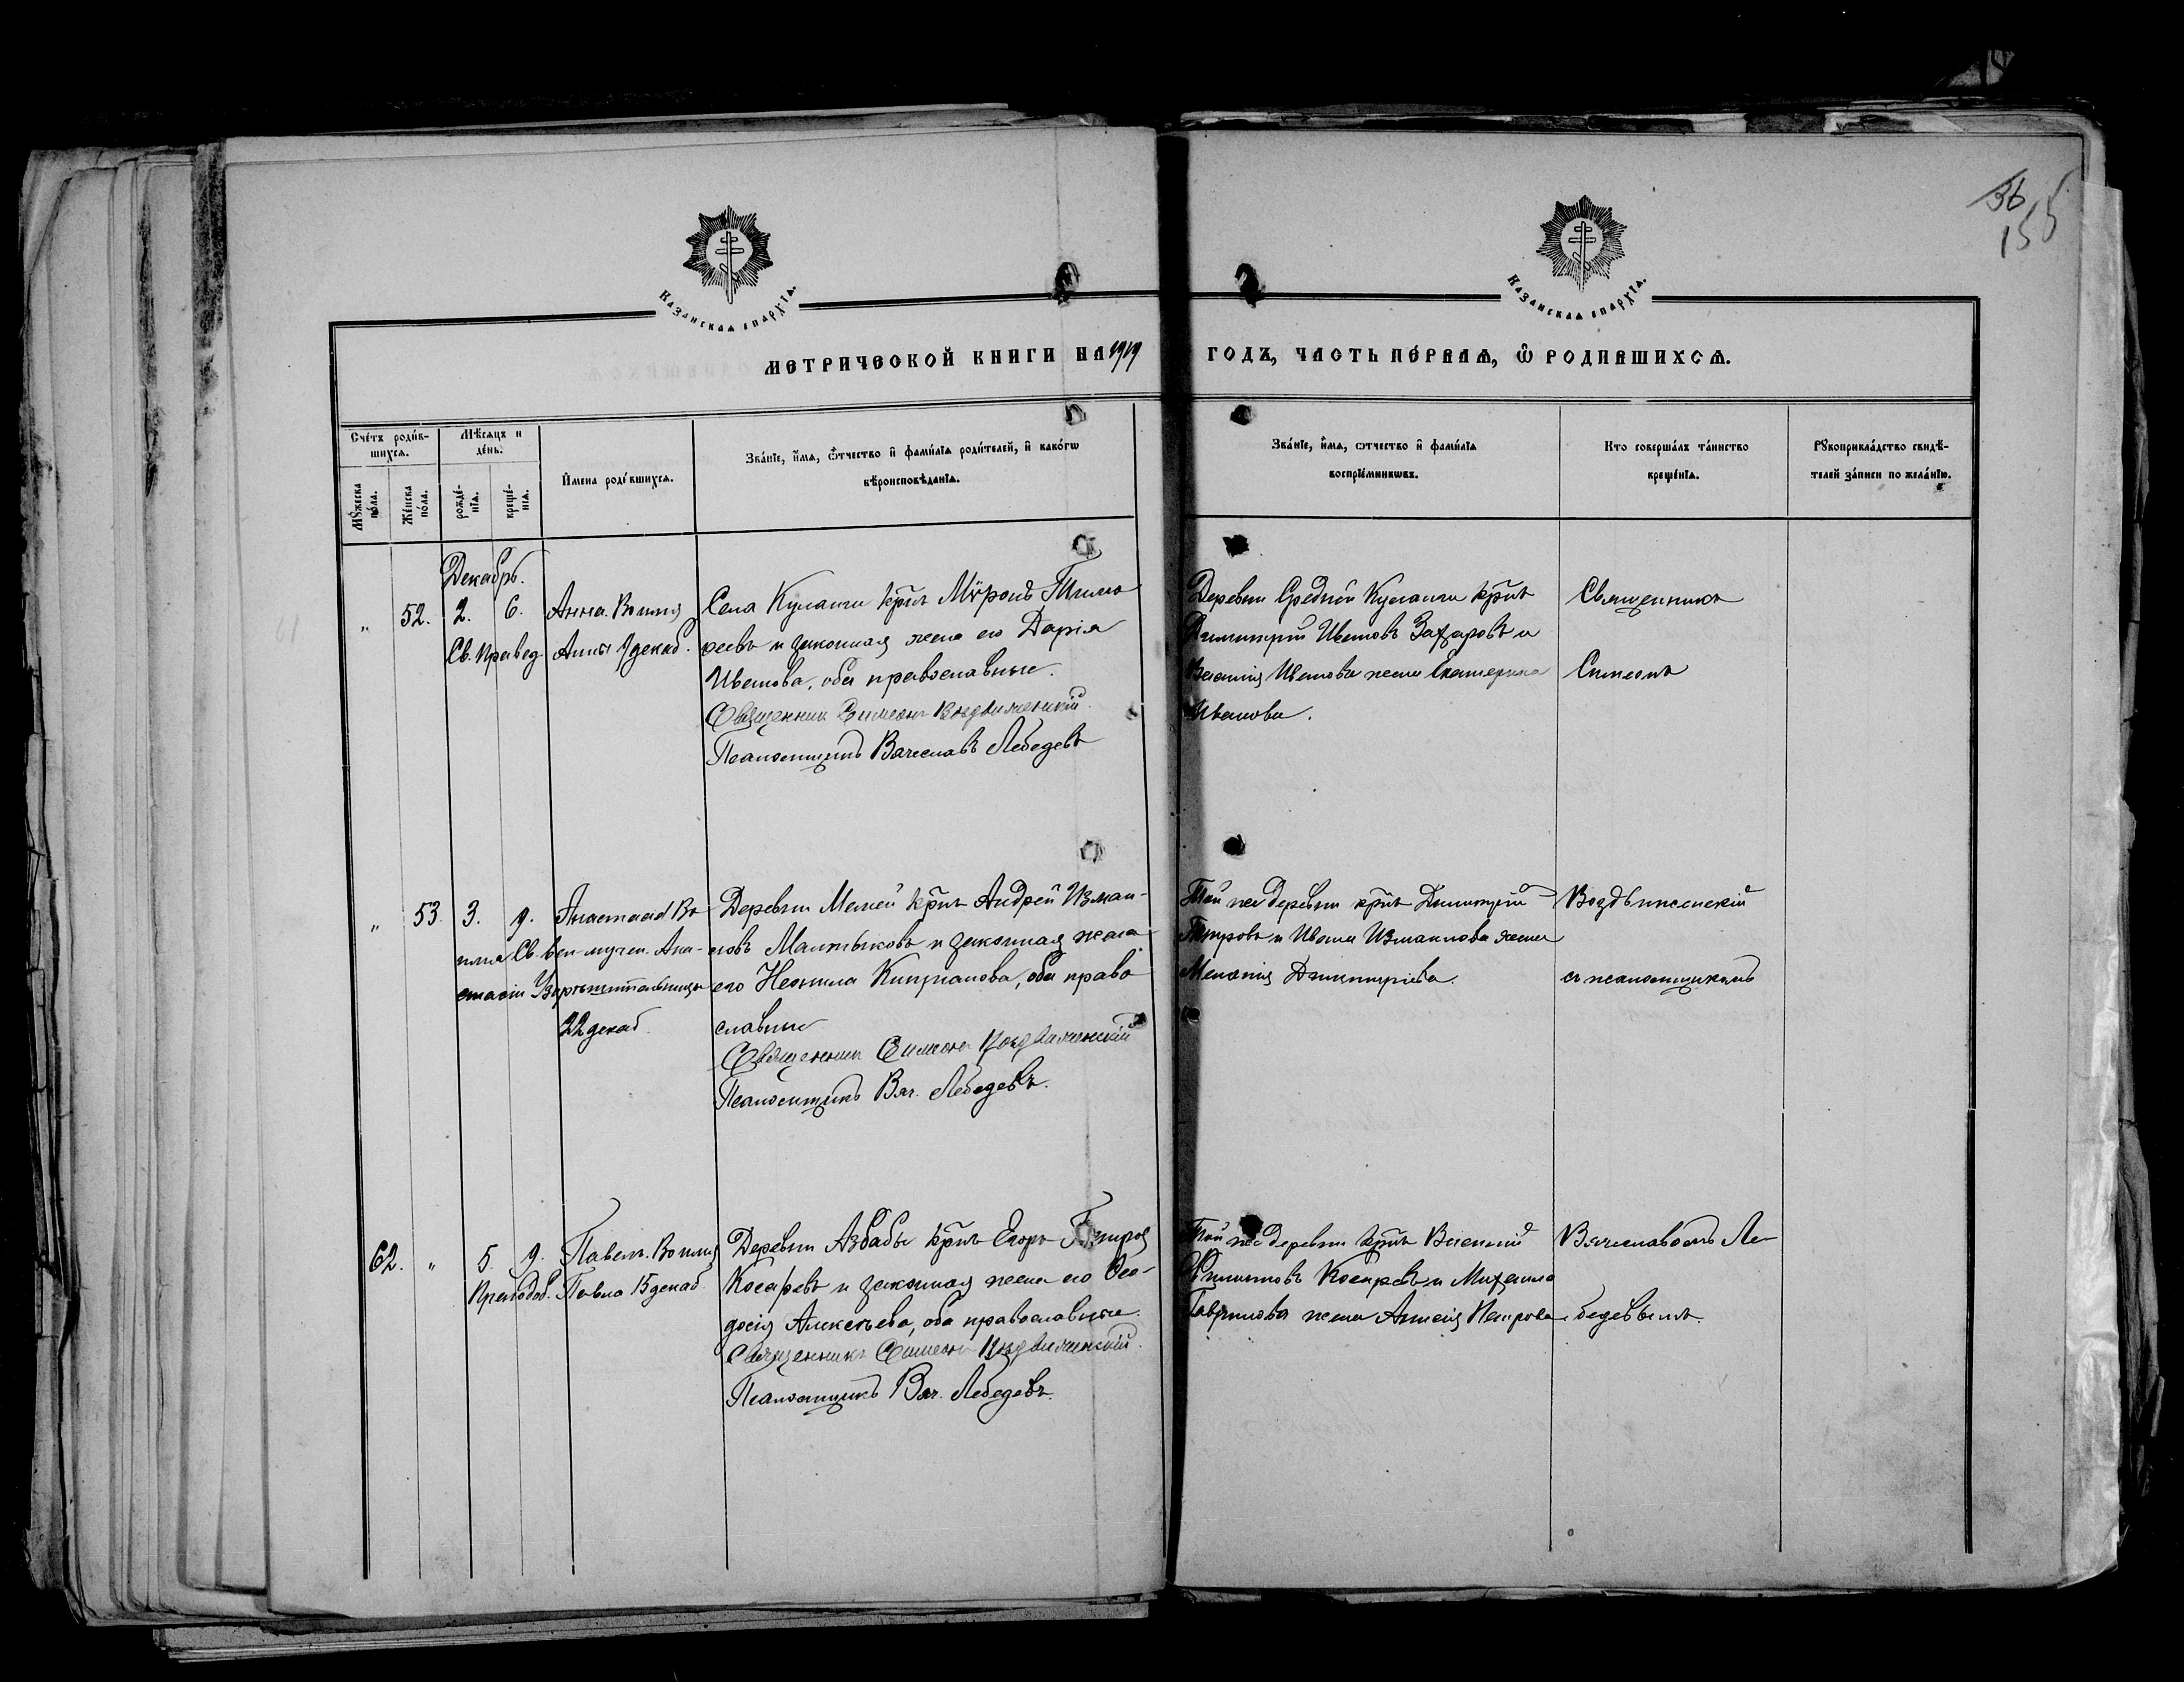 36
155
Казанская епархїа.
Казанская епархїа.
МЕТРИЧЕСКОЙ КНИГИ НА 1919 ГОДЪ, ЧАСТЬ ПЕ́РВАѦ, Ѽ РОДИВШИХСѦ.
Сче́тъ роди́в-
шихсѧ.
Мꙋ́жеска по́ла.
Же́нска по́ла.
Мѣ́сяцъ и
де́нь.
рожде́-
нїѧ.
креще́-
нїѧ.
И҆́мена роди́вшихсѧ.
Зва́нїе, и҆́мѧ, ѻ҆́тчество и҆ фами́лїѧ роди́телей, и҆ како́гѡ
вѣроисповѣ́данїѧ.
Зва́нїе, и҆́мѧ, ѻтчество и҆ фами́лїѧ
воспрїе́мникѡвъ.
Кто соверша́лъ та́инство
креще́нїѧ.
Рꙋкоприкла́дство свидѣ́-
телей за́писи по жела́нїю.
Декабрь.
" 52. 2. 6. Анна. Во имя
Св. Правед. Анны 9 декаб.
Села Куланги кр̃нъ Мѵронъ Тимо
ѳеевъ и законная жена его Дарія
Иванова, оба православные.
Священник Симеонъ Воздвиженскій
Псаломщикъ Вячеславъ Лебедевъ
Деревни Средней Куланги кр̃нъ
Димитрій Ивановъ Захаровъ и
Василія Иванова жена Екатерина
Иванова.
Священникъ
Симеонъ
" 53. 3. 9. Анастасія Во
имя Св. вел-мучен. Ана-
стасіи Узорѣшительницы
22 декаб.
Деревни Мемей кр̃нъ Андрей Измаи-
ловъ Малтыковъ и законная жена
его Неонила Кипріанова, оба право
славные
Священник Симеонъ Воздвиженскій
Псаломщикъ Вяч. Лебедевъ.
Той же деревни кр̃нъ Димитрій
Петровъ и Ивана Измаилова жена
Меланія Димитріева.
Воздвиженскій
съ псаломщикомъ
62. " 5. 9. Павелъ. Во имя
Преподоб. Павла 15 декаб
Деревни Азбабы кр̃нъ Егоръ
Косаревъ и законная жена его Ѳео-
досія Алексѣева, оба православные.
Священникъ Симеонъ Воздвиженскій.
Псаломщикъ Вяч. Лебедевъ.
Той же деревни кр̃нъ Василій
Филиповъ Косаревъ и Михаила
Гаврилова жена Анисія Петрова.
Вячеславомъ Ле-
бедевымъ.